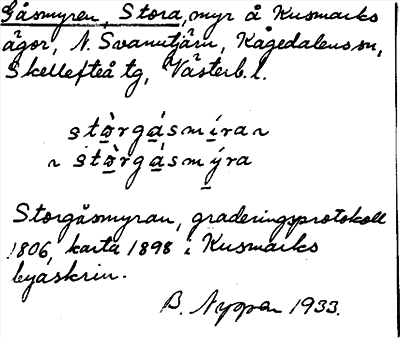 Gåsmyren, Stora, myr å Kusmarks
ägor, N. Svanutjärn, Kågedalens sn,
Skellefteå tg, Västerb. l.
stòrgásmíran
~ stòrgásmýra
Storgåsmyran, graderingsprotokoll
1806, karta 1898 i Kusmarks
byaskrin.
B. Nyppen 1933.